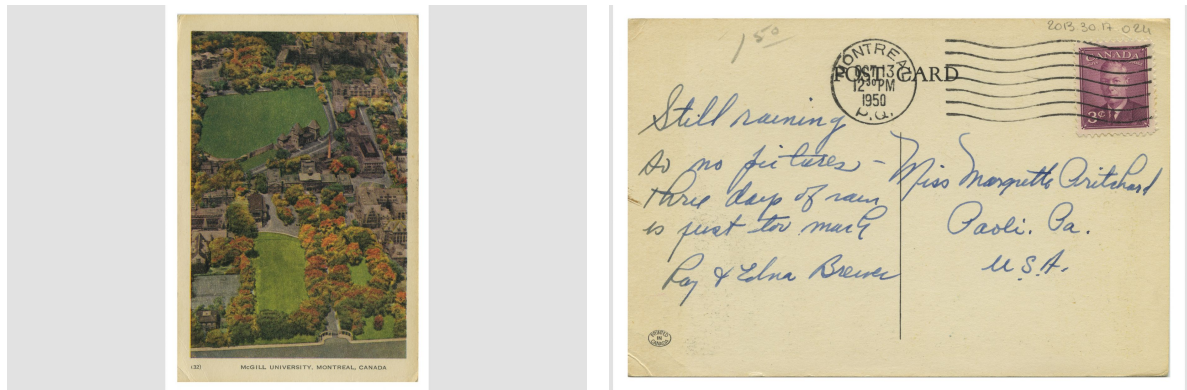 (32) McGILL UNIVERSITY, MONTREAL, CANADA
1 50
2013.30.17.024
MONTREAL
OCT 13
12 30 PM
1950
P.Q.
POST CARD
CANADA
3¢
Still raining
so no pictures –
three days of rain
is just too much
Ray & Edna Brewer
Miss Margretta Pritchard
Paoli. Pa.
U.S.A.
PRINTED
IN
CANADA